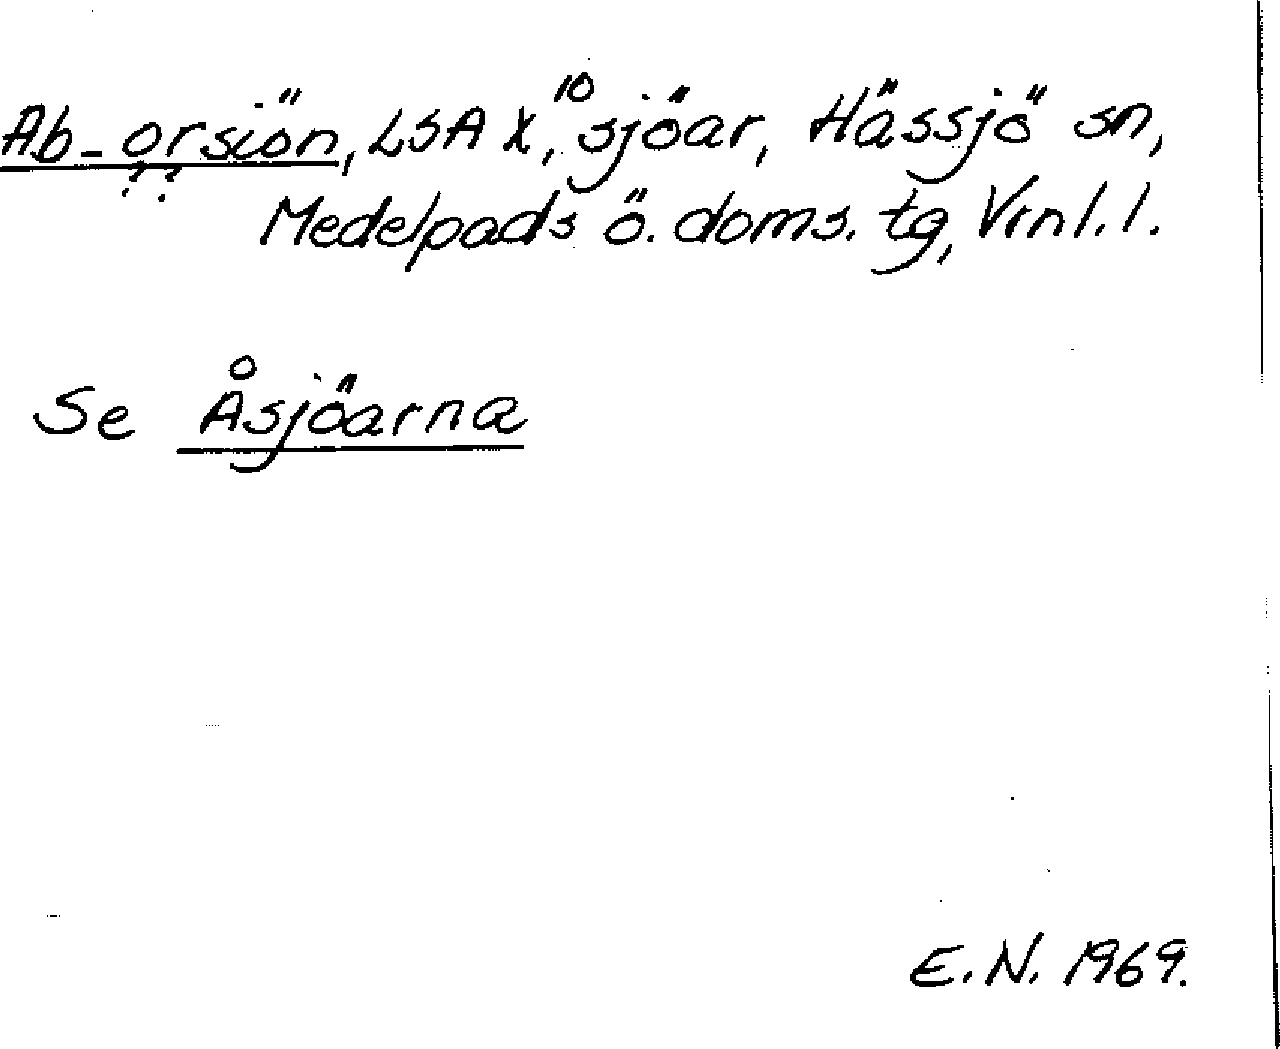 Ab-orsiön, LSA X, 10 sjöar, Hässjö sn,
? ?
Medelpads ö. doms. tg, Vrnl. l.
Se Åsjöarna
E. N. 1969.